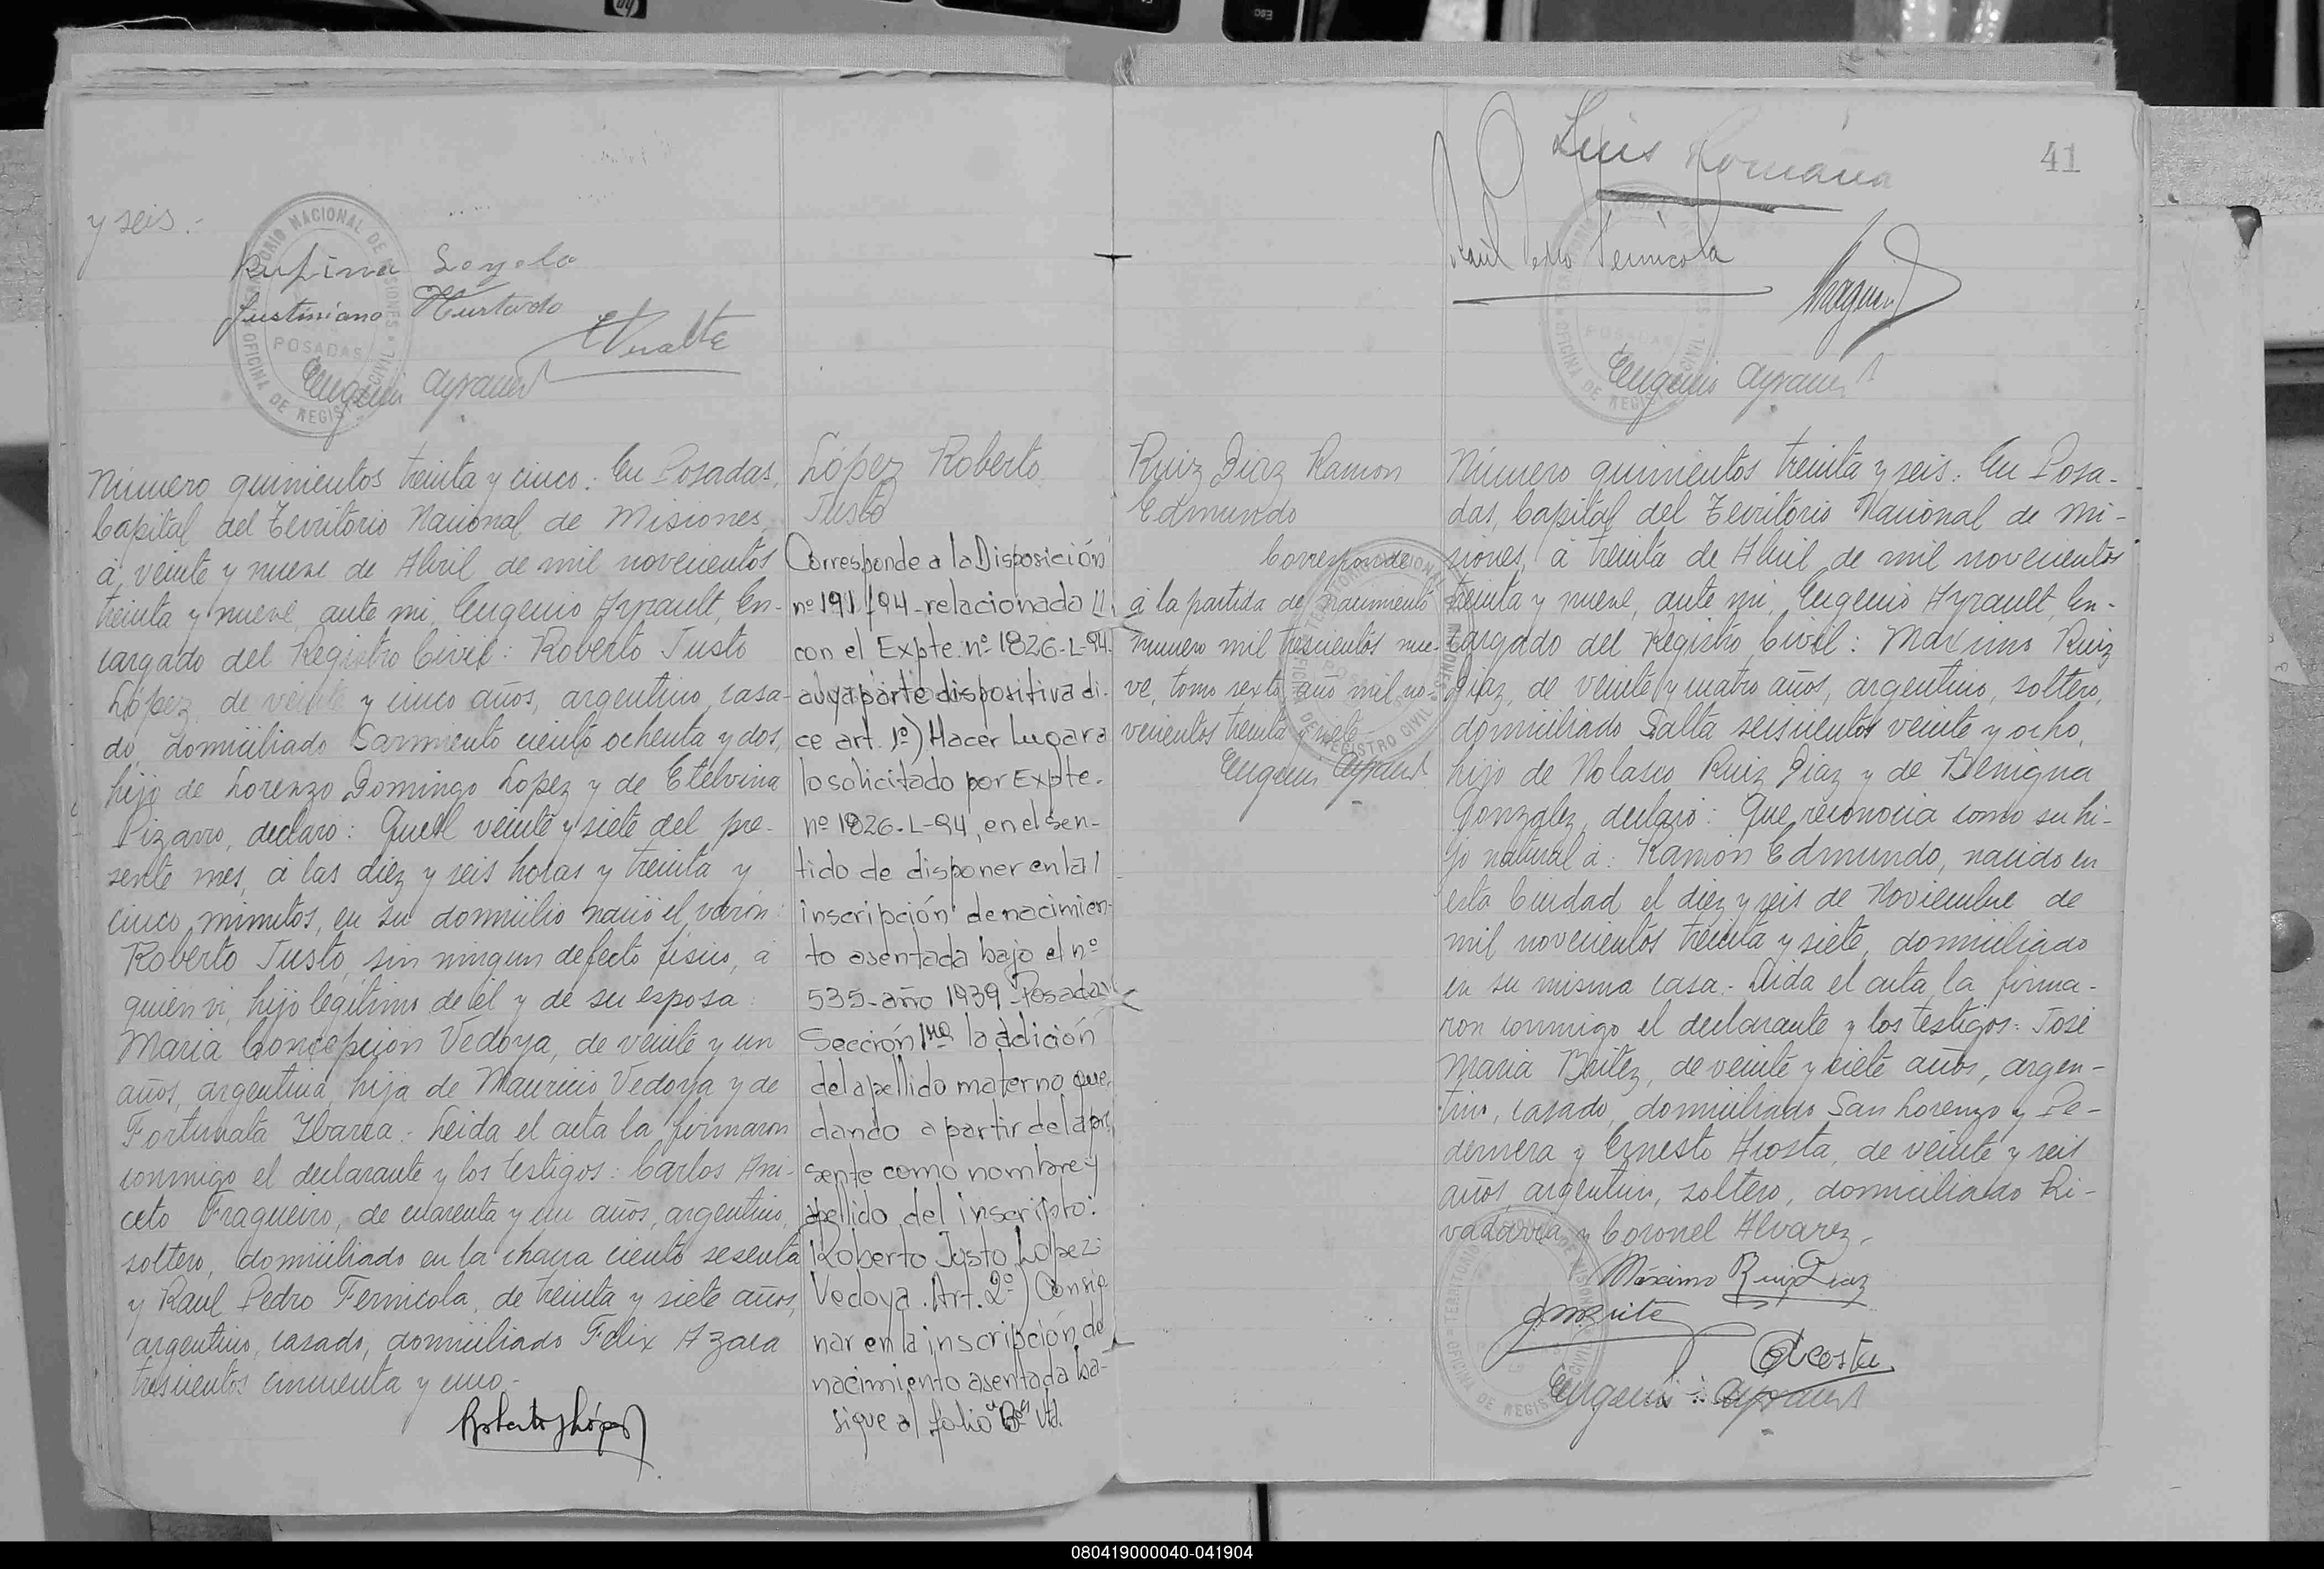 y seis.-
Rufina Loyola
Justiniano Hurtado
Eugenio Ayrault
TERRITORIO NACIONAL DE MISIONES
POSADAS
OFICINA DE REGISTRO CIVIL
Número quinientos treinta y cinco: En Posadas,
Capital del Territorio Nacional de Misiones,
á veinte y nueve de Abril de mil novecientos
treinta y nueve, ante mi, Eugenio Ayrault, En-
cargado del Registro Civil: Roberto Justo
López, de veinte y cinco años, argentino, casa-
do, domiciliado Sarmiento ciento ochenta y dos,
hijo de Lorenzo Domingo Lopez y de Etelvina
Pizarro, declaró: Que el veinte y siete del pre-
sente mes, á las diez y seis horas y treinta y
cinco minutos, en su domicilio nació el varón:
Roberto Justo, sin ningun defecto físico, á
quien vi, hijo legítimo de él y de su esposa:
María Concepción Vedoya, de veinte y un
años, argentina, hija de Mauricio Vedoya y de
Fortunata Ibarra.- Leida el acta la firmaron
conmigo el declarante y los testigos: Carlos Ani-
ceto Fragueiro, de cuarenta y un años, argentino,
soltero, domiciliado en la chacra ciento sesenta
y Raul Pedro Fernicola, de treinta y siete años,
argentino, casado, domiciliado Felix Azara
trescientos cincuenta y uno.-
Roberto J López
López Roberto
Justo
Corresponde a la Disposición
nº 191/94-relacionada
con el Expte. nº 1826-L-94.
cuya parte dispositiva di-
ce art. 1º) Hacer Lugar a
lo solicitado por Expte.
nº 1826-L-94, en el sen-
tido de disponer en la
inscripción de nacimien-
to asentada bajo el nº
535-año 1939-Posadas
Sección 1ra la adición
del apellido materno que
dando a partir de la pre
sente como nombre y
apellido del inscripto:
Roberto Justo López
Vedoya. Art. 2º) Consig
nar en la inscripción de
nacimiento asentada ba-
sigue al folio Vto.
41
Luis Romana
Raúl Pedro Fernicola
Eugenio Ayrault
POSADAS
OFICINA DE REGISTRO CIVIL
Ruiz Diaz Ramon
Edmundo
Corresponde
á la partida de nacimiento
número mil trescientos nue-
ve, tomo sexto año mil no-
vecientos treinta y siete
Eugenio Ayrault
Número quinientos treinta y seis: En Posa-
das, Capital del Territorio Nacional de Mi-
siones, á treinta de Abril de mil novecientos
treinta y nueve, ante mi, Eugenio Ayrault, En-
cargado del Registro Civil: Maximo Ruiz
Diaz, de veinte y cuatro años, argentino, soltero,
domiciliado Salta seiscientos veinte y ocho,
hijo de Nolasco Ruiz Diaz y de Benigna
Gonzalez, declaró: Que reconocia como su hi-
jo natural á: Ramón Edmundo, nacido en
esta Ciudad el diez y seis de Noviembre de
mil novecientos treinta y siete, domiciliado
en su misma casa.- Leida el acta la firma-
ron conmigo el declarante y los testigos: José
Maria Britez, de veinte y siete años, argen-
tino, casado, domiciliado San Lorenzo y Pe-
dernera y Ernesto Acosta, de veinte y seis
años, argentino, soltero, domiciliado Ri-
vadavia y Coronel Alvarez.-
Máximo Ruiz Diaz
E Acosta
Eugenio Ayrault
080419000040-041904